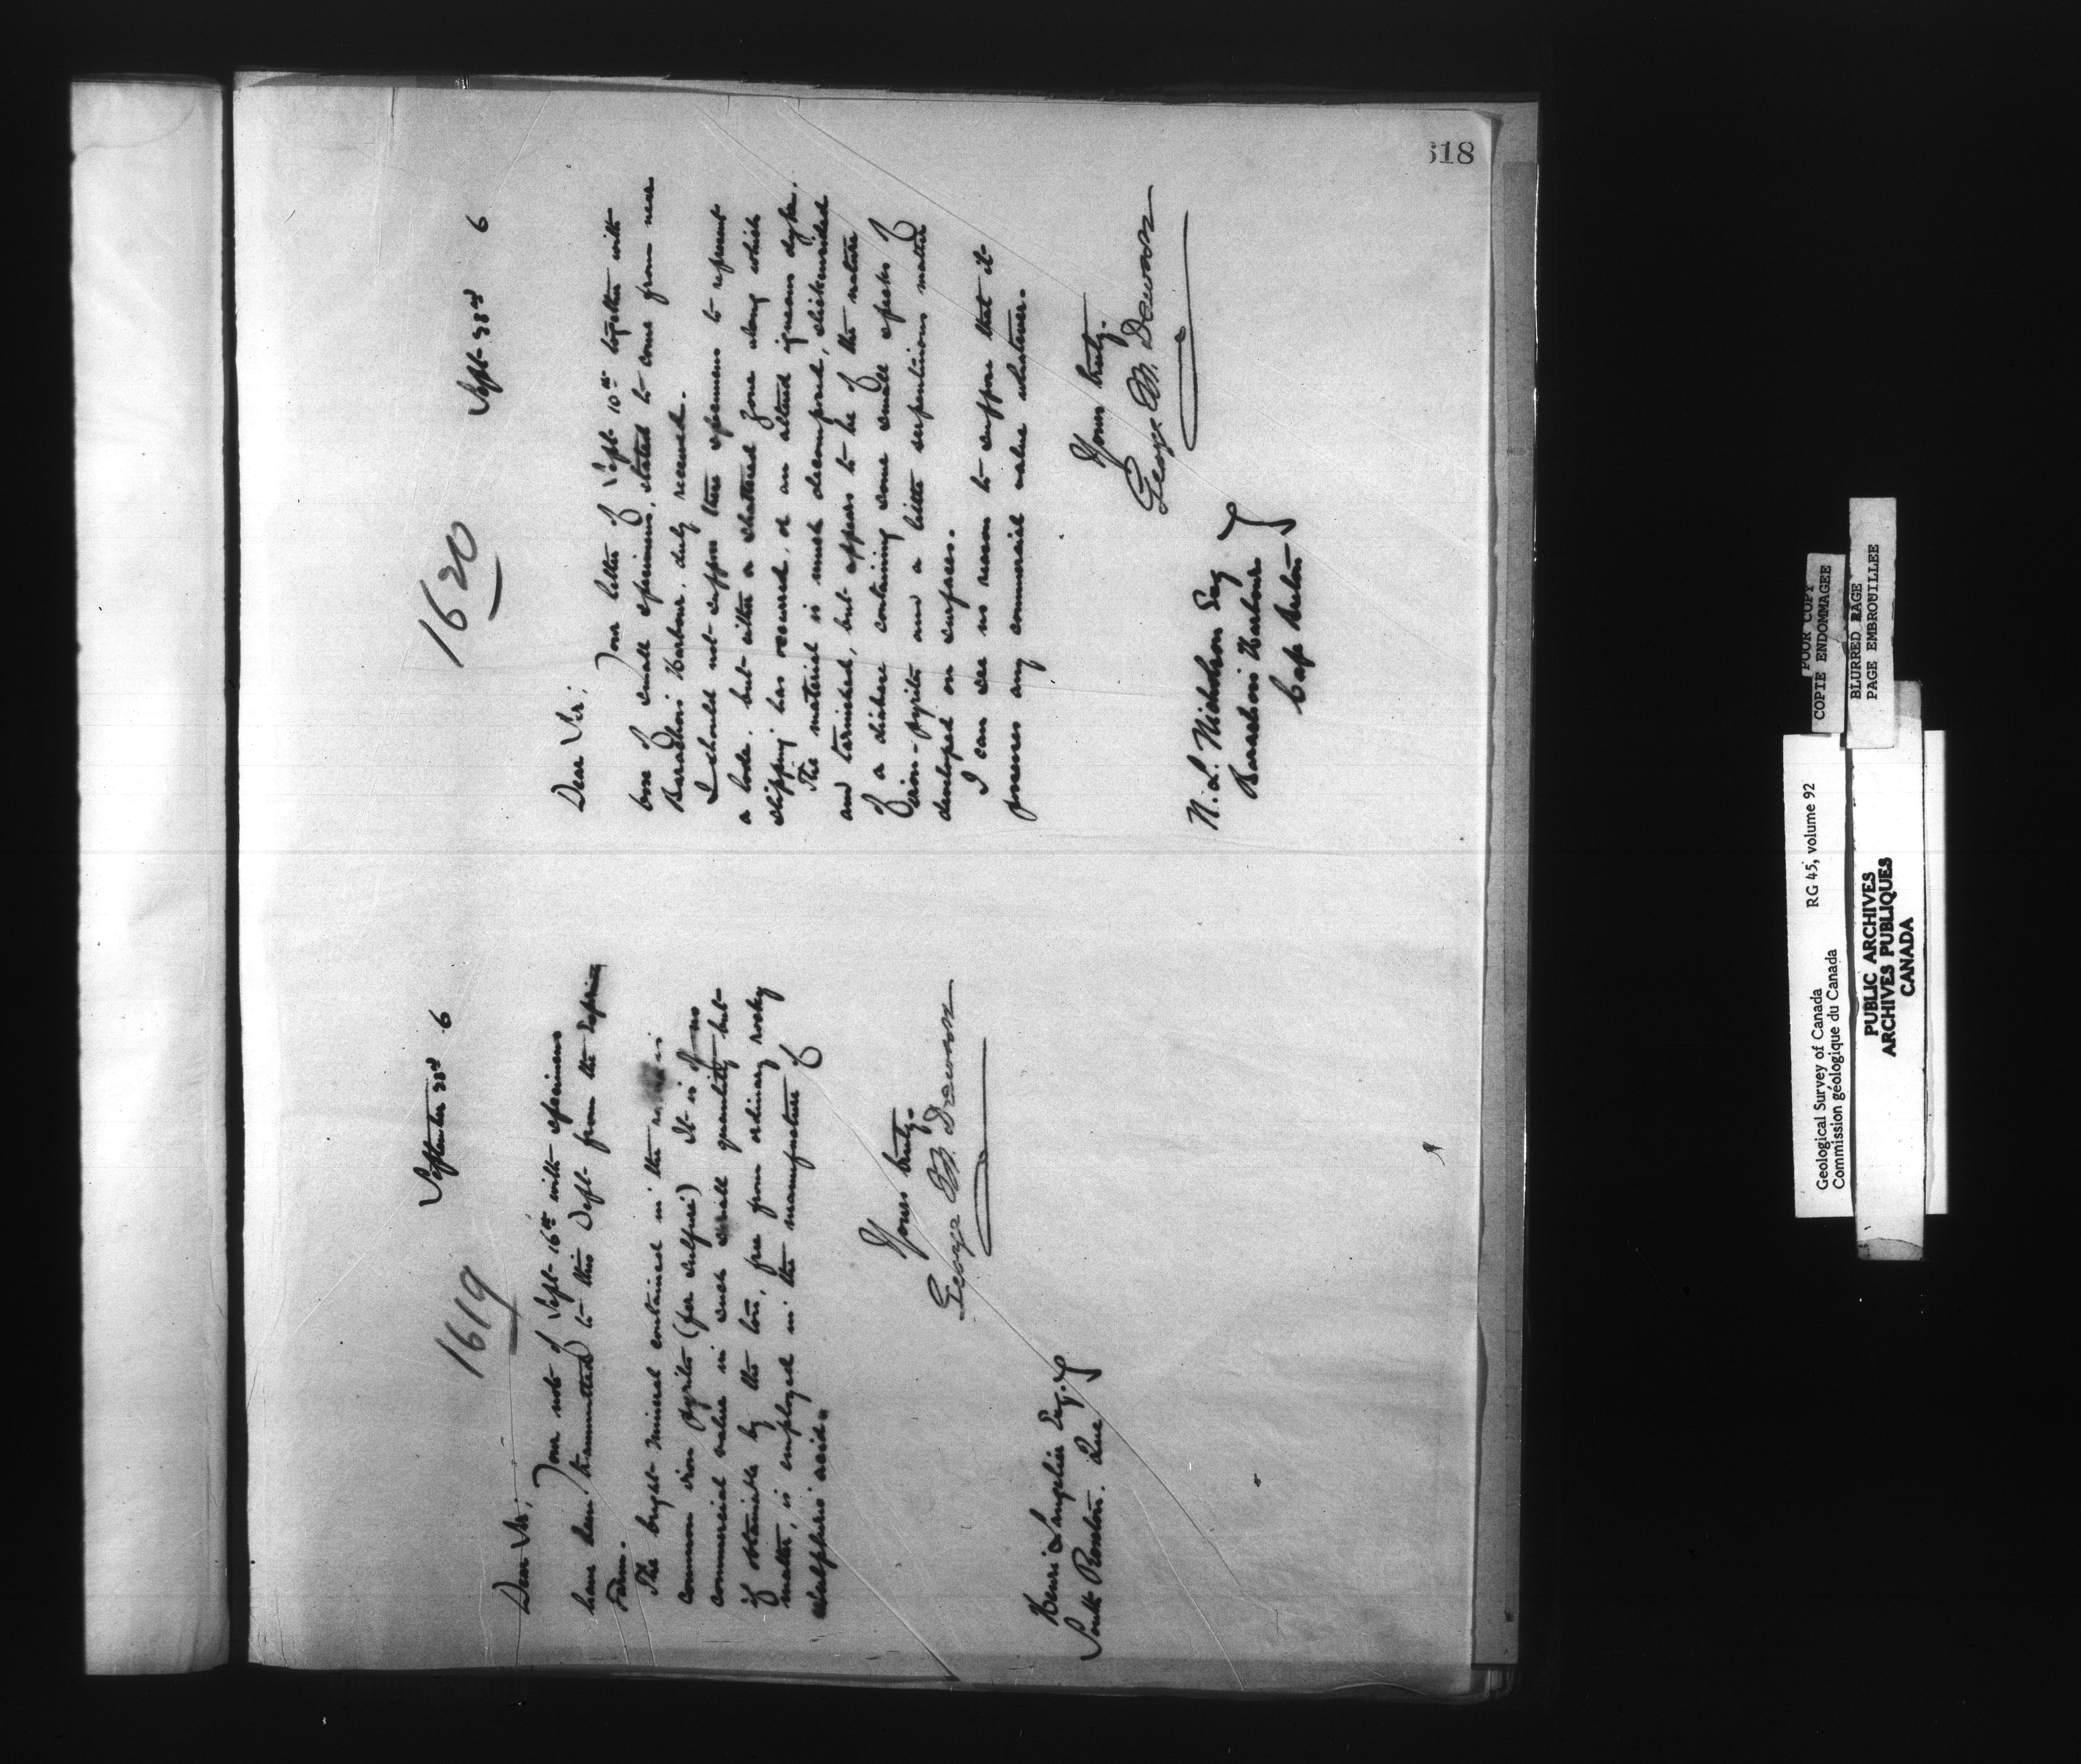 618
1619
September 23rd 6
Dear Sir,
Your note of Sept. 16th with specimens
have been transmitted to this Dept. from the Experim
Farm.
The bright mineral contained in the is
common iron pyrites (fer sulfuré) It is of no
commercial value in such small quantity but
if obtainable by the ton, free from ordinary rocky
matter, is employed in the manufacture of
sulphuric acid.
Yours truly.
George M. Dawson
Henri Langelier Esq.
South Roxton. Que
1620
Sept. 23rd 6
Dear Sir,
Your letter of Sept. 10th together with
box of small specimens, stated to come from near
Barachois Harbour, duly received.
I should not suppose these specimens to represent
a lode, but either a shattered zone along which
slipping has occurred, or an altered igneous dyke.
The material is much decomposed, slickensided
and tarnished, but appears to be of the nature
of a diabase containing some small specks of
iron-pyrites and a little serpentinous matter
developed on surfaces.
I can see no reason to suppose that it
possesses any commercial value whatever.
Yours truly.
George M. Dawson
N. L. Nicholson Esq
Barachois Harbour
Cape Breton
POOR COPY
COPIE ENDOMMAGEE
BLURRED PAGE
PAGE EMBROUILLEE
Geological Survey of Canada RG 45, volume 92
Commission géologique du Canada
PUBLIC ARCHIVES
ARCHIVES PUBLIQUES
CANADA